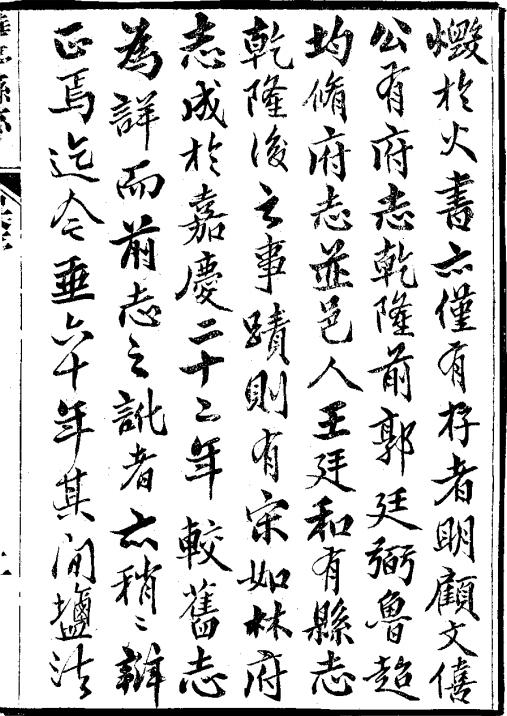 燬於火書亦僅有存者明顧文僖
公有府志乾隆前郭廷弼魯超
均脩府志並邑人王廷和有縣志
乾隆後之事蹟則有宋如林府
志成於嘉慶二十二年較舊志
為詳而前志之訛者亦稍〻辯
正焉迄今垂六十年其间鹽法